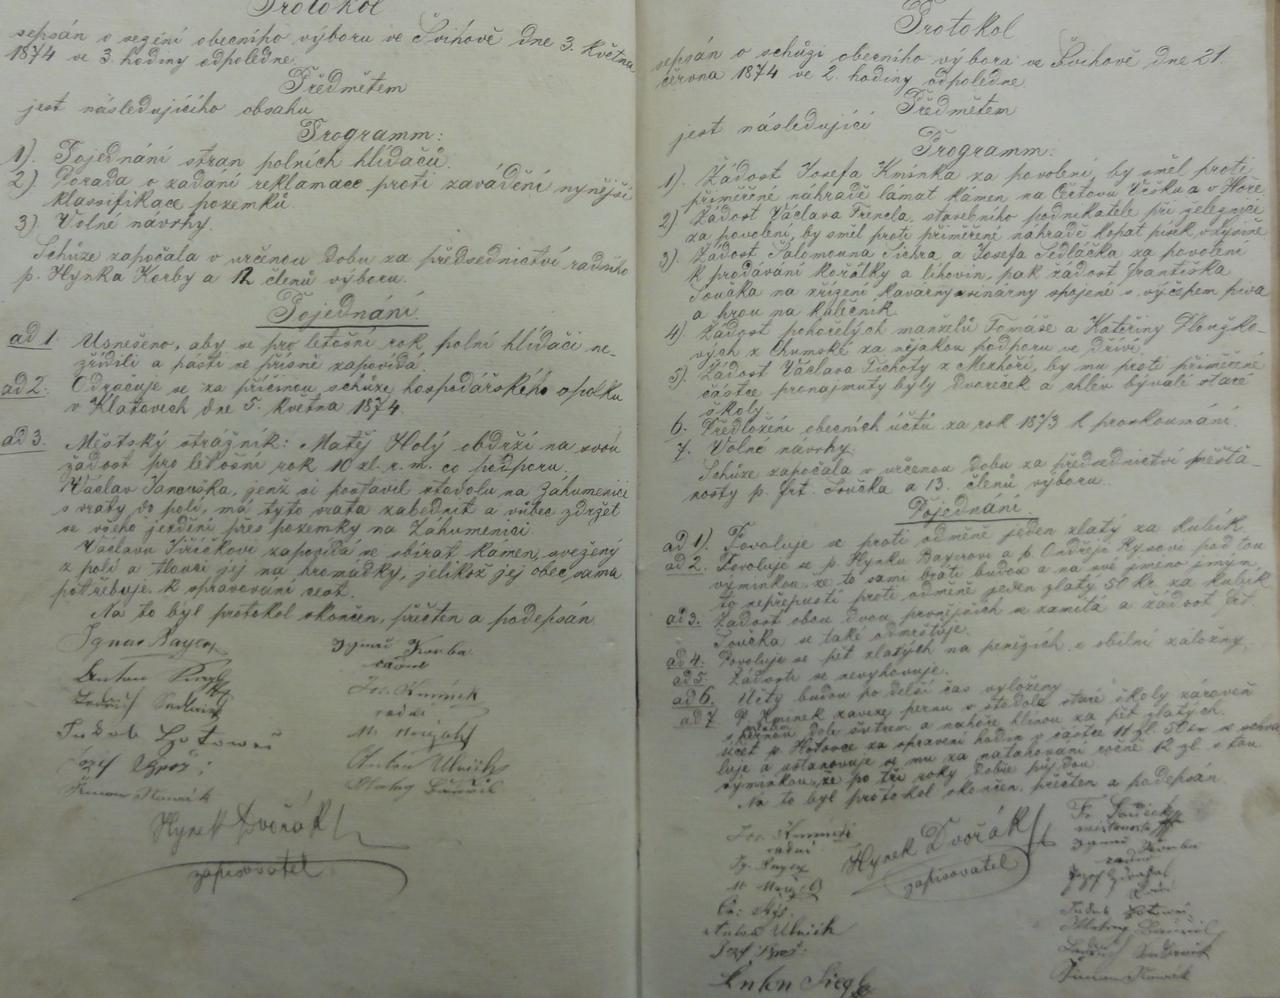 Protokol
sepsán o sezení obecního výboru ve Švihově dne 3. května
1874 ve 3. hodiny odpoledne.
Předmětem
jest následujícího obsahu
Programm:
1). Pojednání stran polních hlídačů.
2) Porada o zadání reklamace proti zavádění nynější
klassifikace pozemků.
3) Volné návrhy.
Schůze započala v určenou dobu za předsednictví radního
p. Hynka Korby a 12 členů výboru.
Pojednání.
ad 1. Usnešeno, aby se pro letošní rok polní hlídači ne-
zřídili a pásti se přísně zapovídá.
ad 2. Odročuje se za příčinou schůze hospodářského spolku
v Klatovech dne 5. května 1874.
ad 3. Městský strážník: Matěj Holý obdrží na svou
žádost pro letošní rok 10 zl. r. m. co podporu.
Václav Janouška, jenž si postavil stodolu na Záhumenici
s vraty do polí, má tyto vrata zabednit a vůbec zdržet
se všeho ježdění přes pozemky na Záhumenici.
Václavu Jiříčkovi zapovídá se sbírat kámen, svežený
z polí a tlouci jej na hromádky, jelikož jej obec sama
potřebuje k spravování cest.
Na to byl protokol skončen, přečten a podepsán.
Ignac Bayer
Ignac Korba
radní
Anton
Jos. Kminek
radní
Jakub Hotowec
Anton Ulrich
Josef
Šimon Nowák
Hynek Dvořák
zapisovatel
Protokol
sepsán o schůzi obecního výboru ve Švihově dne 21.
června 1874 ve 2. hodiny odpoledne.
Předmětem
jest následující
Programm:
1). Žádost Josefa Kmínka za povolení, by směl proti
přiměřené náhradě lámat kámen na Čertovu Vršku a v Hoře
2) Žádost Václava Frencla, stavebního podnikatele při železnici
za povolení, by směl proti přiměřené náhradě kopat písek
3) Žádost Šalomouna Sichra a Josefa Sedláčka za povolení
k prodávání kořalky a lihovin, pak žádost Františka
Součka na zřízení kavárny spojené s výčepem piva
a hrou na kulečník.
4) Žádost pohořelých manželů Tomáše a Kateřiny Houžko-
vých z Chumské za nějakou podporu ve dříví.
5). Žádost Václava Tichoty z Mezhoří, by mu proti přiměřené
částce pronajmuty byly Dvoreček a chlév bývalé staré
školy.
6. Předložení obecních účtů za rok 1873 k proskoumání.
7. Volné návrhy.
Schůze započala v určenou dobu za předsednictví pp. měšťa-
nosty p. Frt. Součka a 13. členů výboru.
Pojednání.
ad 1). Povoluje se proti odměně jeden zlatý za kubík
ad 2. Povoluje se p. Hynku Bayerovi a p. Ondřeji Rysovi pod tou
výminkou, že to sami bráti budou a na své jmeno jiným
to nepřepustí proti odměně jeden zlatý 50 kr. za kubík
ad 3. Žádost obou dvou prvnějších se zamítá a žádost Frt.
Součka se také odmrštuje.
ad 4. Povoluje se pět zlatých na penězích z obilní záložny,
ad 5. Žádosti se nevyhovuje.
ad 6. Účty budou po delší čas vyloženy
ad 7. P. Kmínek zaveze pernu v stodole staré školy zároveň
s pernou dole sutrem a nahoře hlínou za pět zlatých.
účet p. Hotovce za spravení hodin v částce 11 zl. 50 kr se schva
luje a ustanovuje se mu za natahování ročně 12 zl. s tou
výminkou, že po tři roky dobře půjdou.
Na to byl protokol skončen, přečten a podepsán.
Jos. Kminek
radní
Ig. Bayer
Anton Ulrich
Anton Siegl
Hynek Dvořák
zapisovatel
Fr. Souček
radní
Jakub Hotowec
Šimon Nowák